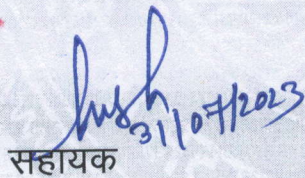 31/07/2023
सहायक